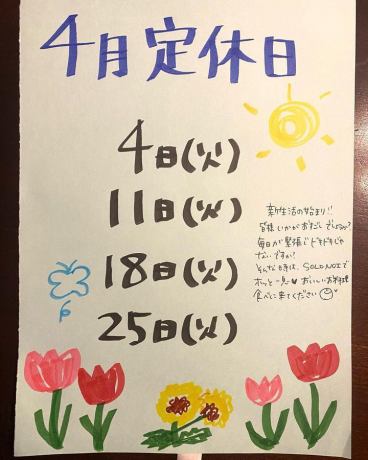 4月定休日
4日(火)
11日(火)
18日(火)
25日(火)
新生活の始まり!!
皆様いかがおすごしでしょうか?
毎日が緊張でドキドキじゃ
ないですか?
そんな時は、SOLONOIで
ホッと一息♥おいしいお料理
食べに来てください